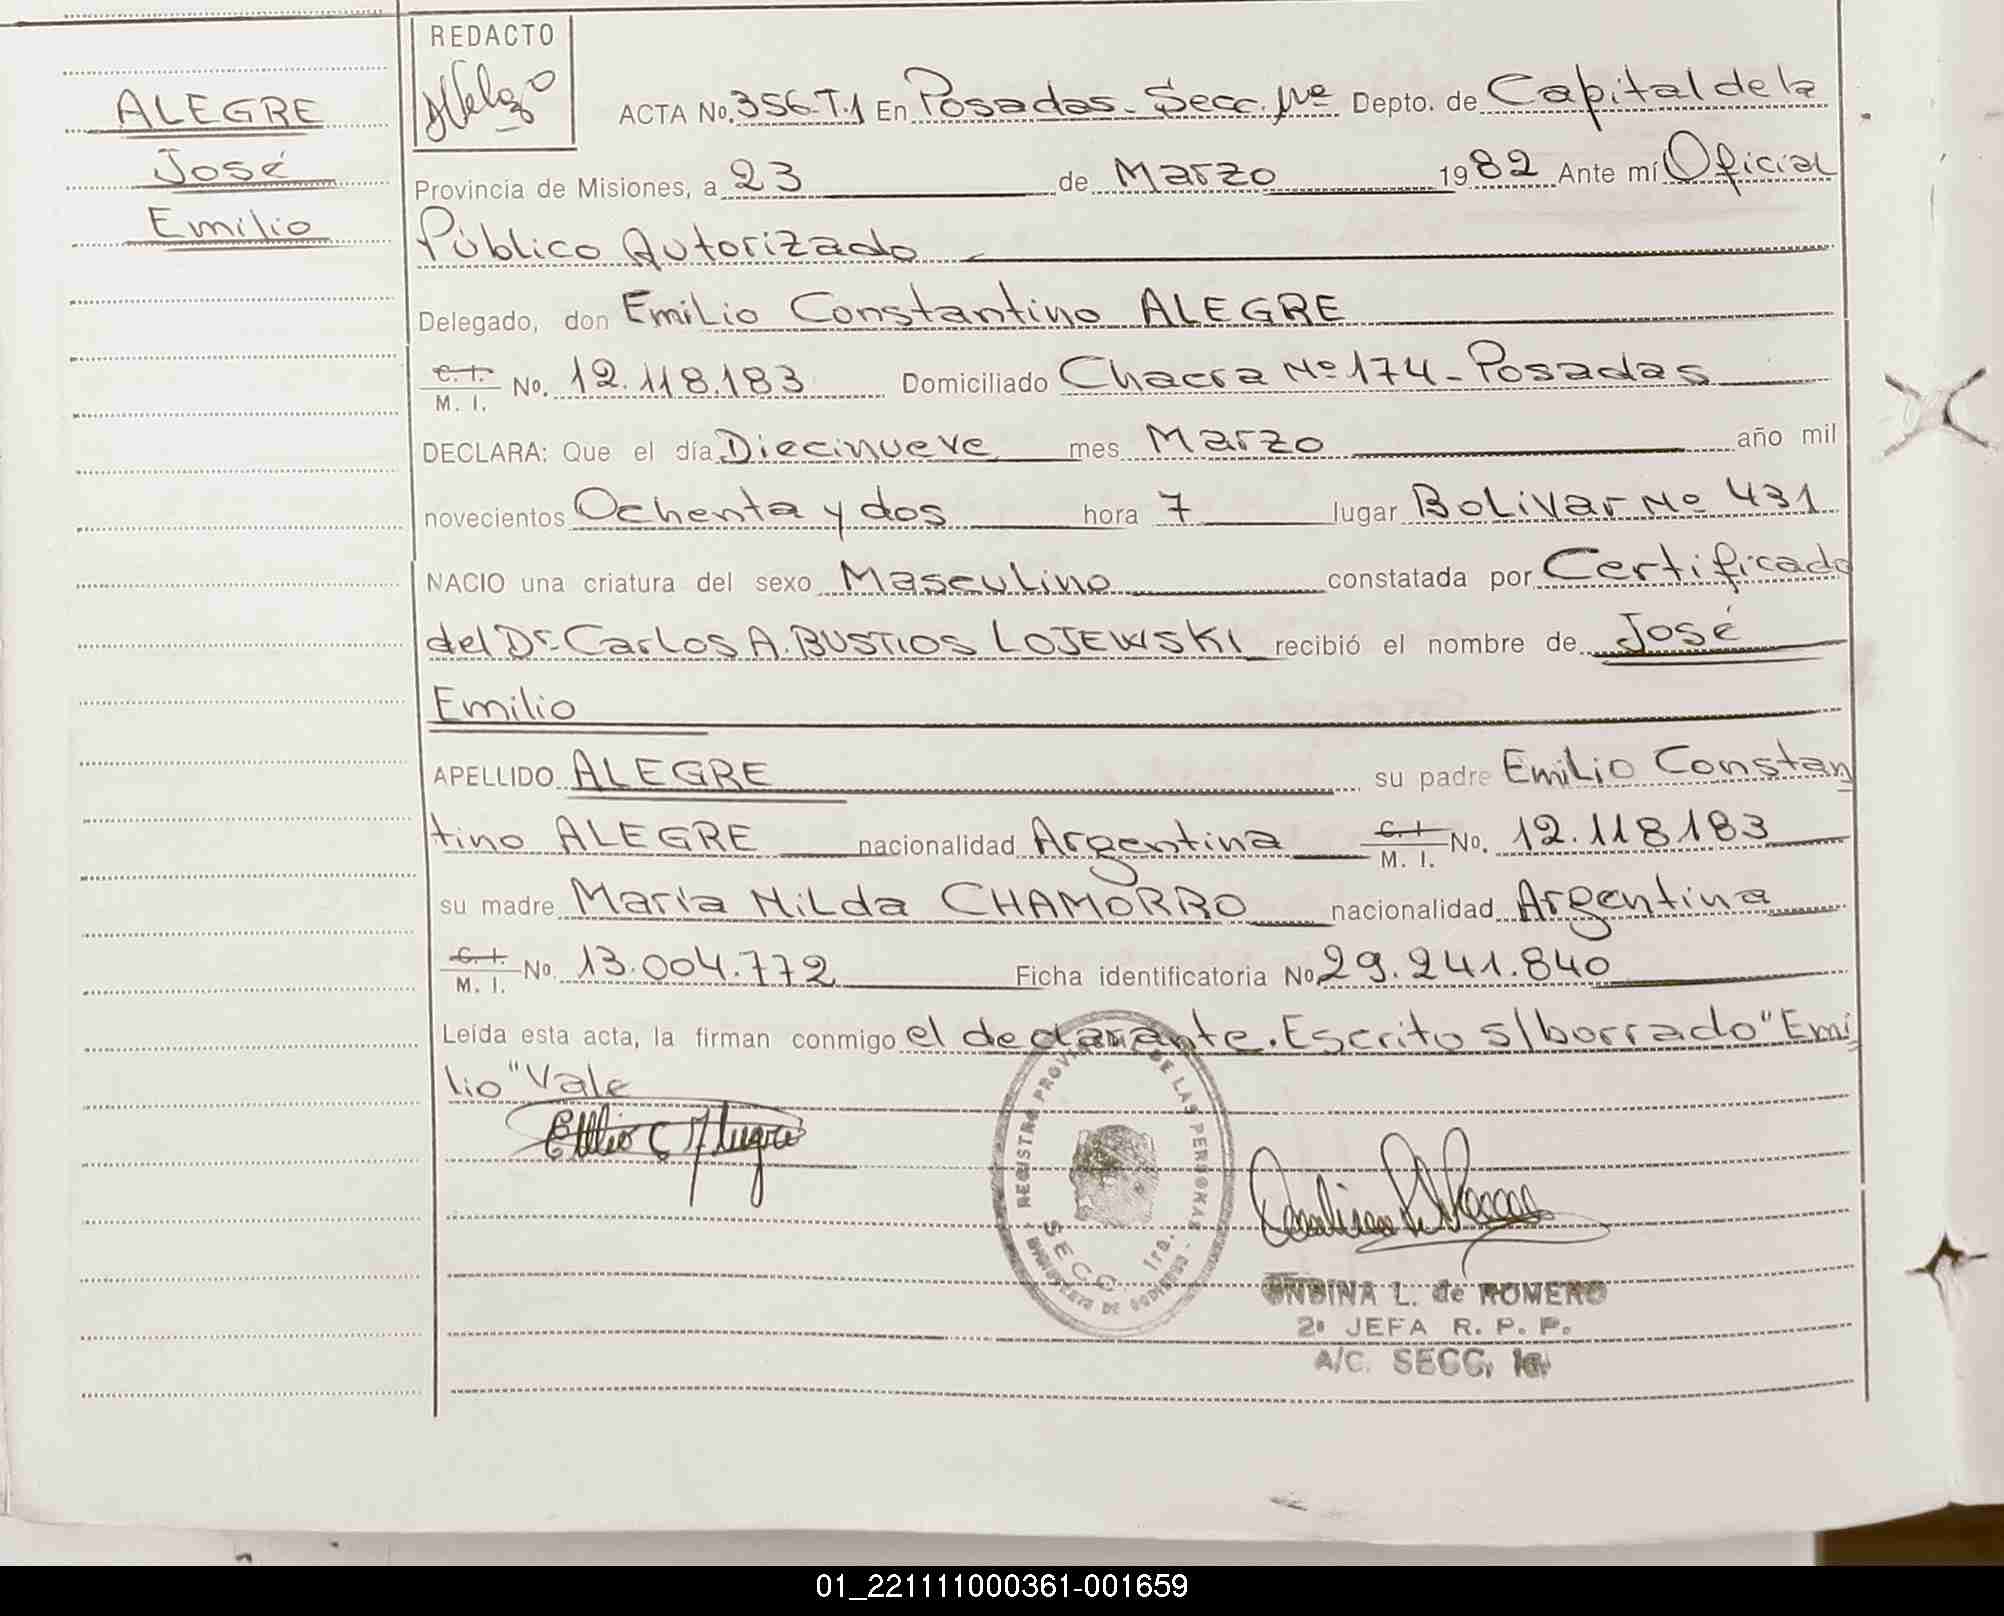 REDACTO
ALEGRE
José
Emilio
ACTA No. 356-T.1 En Posadas - Secc. 1ra Depto. de Capital de la
Provincia de Misiones, a 23 de Marzo 1982 Ante mí Oficial
Público Autorizado
Delegado, don Emilio Constantino ALEGRE
C. I. / M. I. No. 12.118.183 Domiciliado Chacra Nº 174 - Posadas
DECLARA: Que el día Diecinueve mes Marzo año mil
novecientos Ochenta y dos hora 7 lugar BoLivar Nº 431
NACIO una criatura del sexo Masculino constatada por Certificado
del Dr. Carlos A. BUSTIOS LOJEWSKI recibió el nombre de José
Emilio
APELLIDO ALEGRE su padre Emilio Constan
tino ALEGRE nacionalidad Argentina C. I. / M. I. No. 12.118.183
su madre María Nilda CHAMORRO nacionalidad Argentina
C. I. / M. I. No. 13.004.772 Ficha identificatoria No 29.241.840
Leída esta acta, la firman conmigo el declarante. Escrito s/borrado "Emi
lio" Vale
Emilio C Alegre
REGISTRO PROVINCIAL DE LAS PERSONAS
SECC. 1ra.
MINISTERIO DE GOBIERNO
ONDINA L. de ROMERO
2º JEFA R. P. P.
A/C. SECC. 1a.
01_221111000361-001659